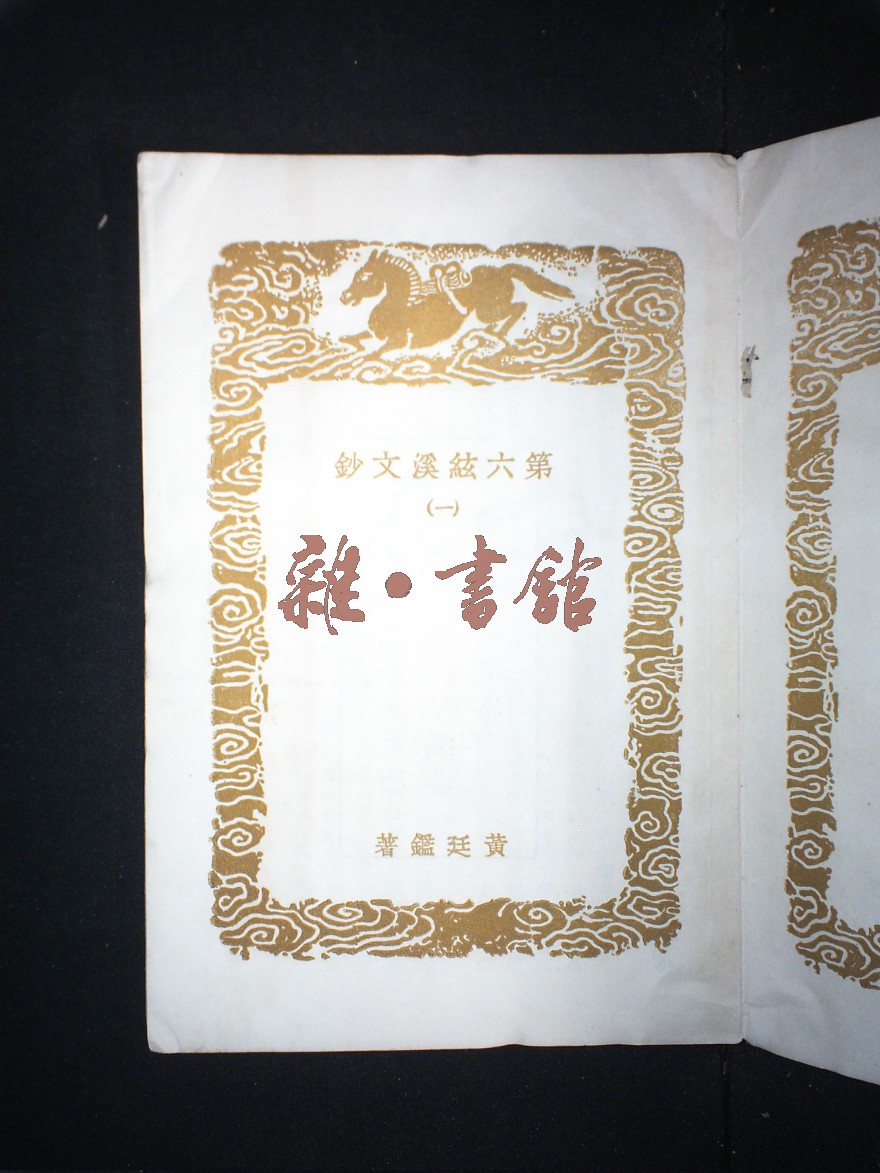 第六絃溪文鈔
(一)
雜·書舘
黄廷鑑著